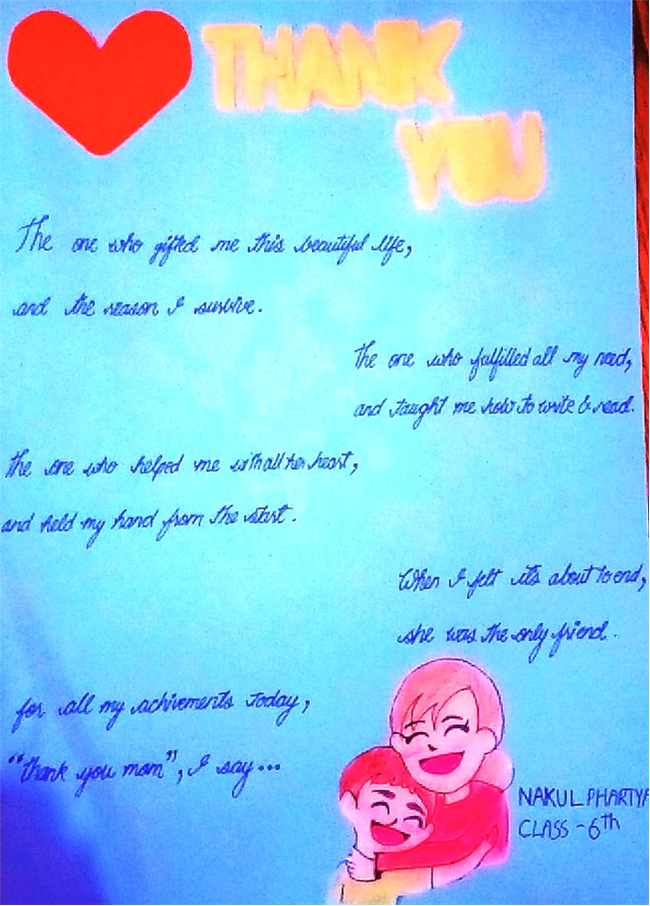 THANK
YOU
The one who gifted me this beautiful life,
and the reason I survive.
The one who fulfilled all my need,
and taught me how to write & read.
The one who helped me with all her heart,
and held my hand from the start.
When I felt it's about to end,
she was the only friend.
for all my achivements today,
"thank you mom", I say...
NAKUL PHARTYA
CLASS - 6th